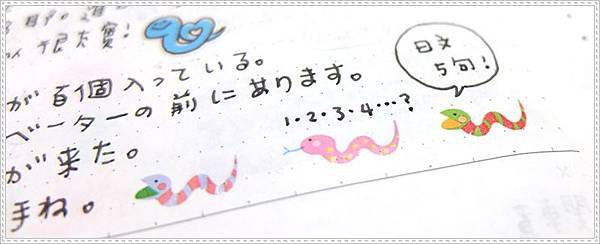 很太實!
が百個入っている。
ベーターの前にあります。
が来た。
手ね。
1・2・3・4…?
日文
5句!